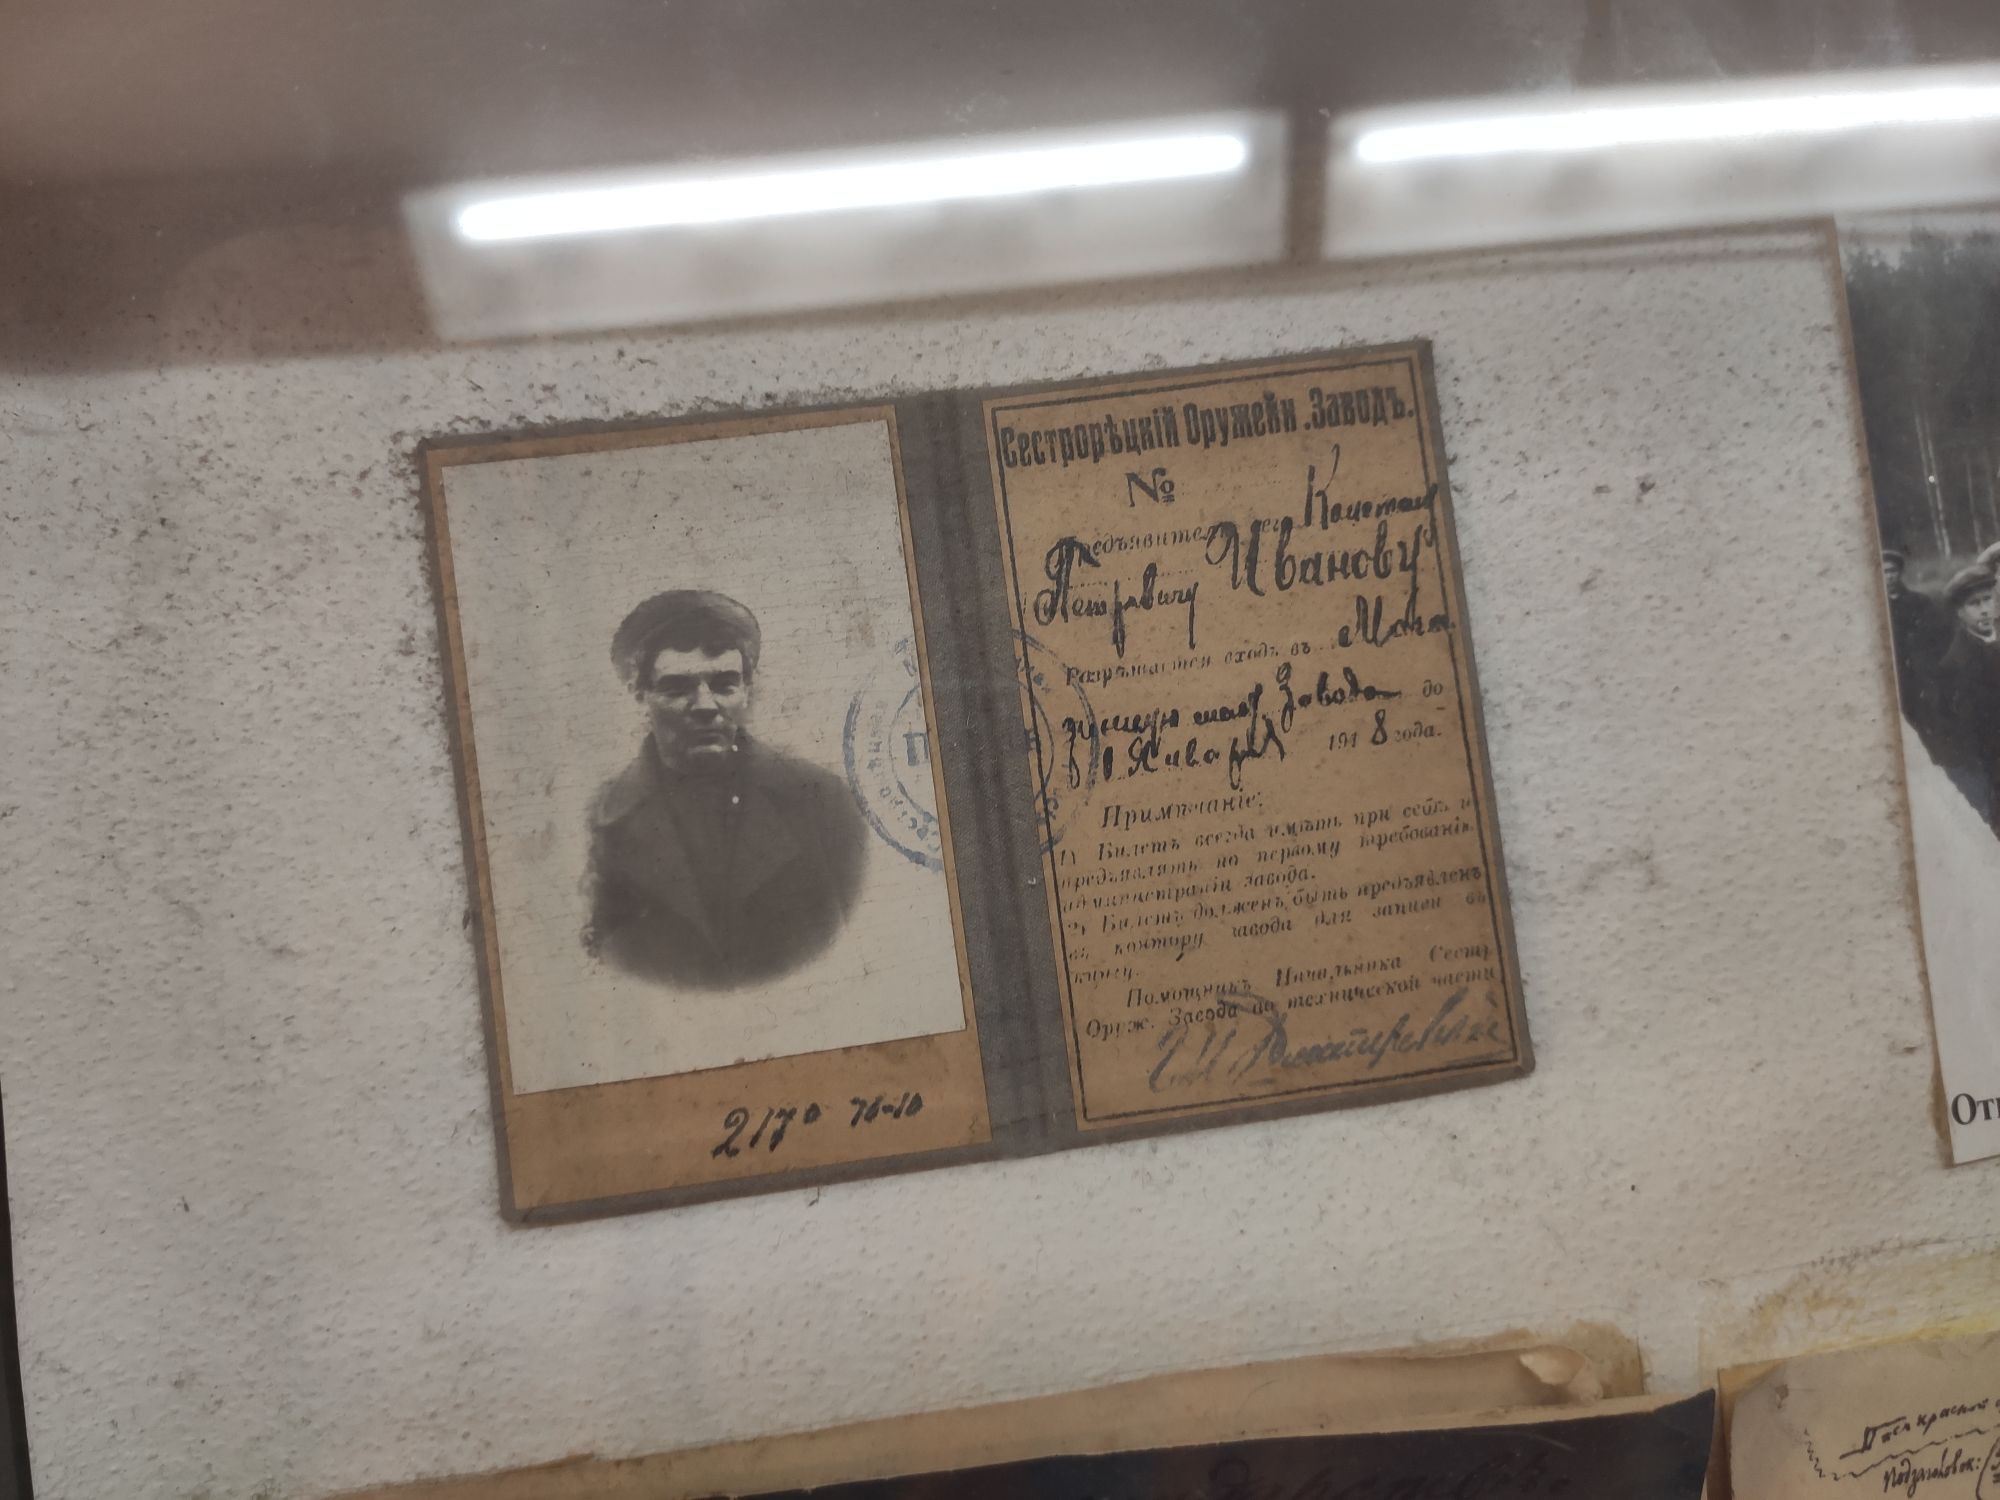 Сестрорѣцкій Оружейн. Заводъ.
№
Предъявитель сего Констан
Петровичу Иванову
Разрѣшается входъ въ Мага
зинную мас. Завода до
1 Января 1918 года.
Примѣчаніе:
1) Билетъ всегда имѣть при себѣ и
предъявлять по первому требованію
администраціи завода.
2) Билетъ долженъ быть предъявленъ
въ контору завода для записи въ
книгу.
Помощникъ Начальника Сестр.
Оруж. Завода по технической части
2170 76-10
От
красной
Подзаголовок: